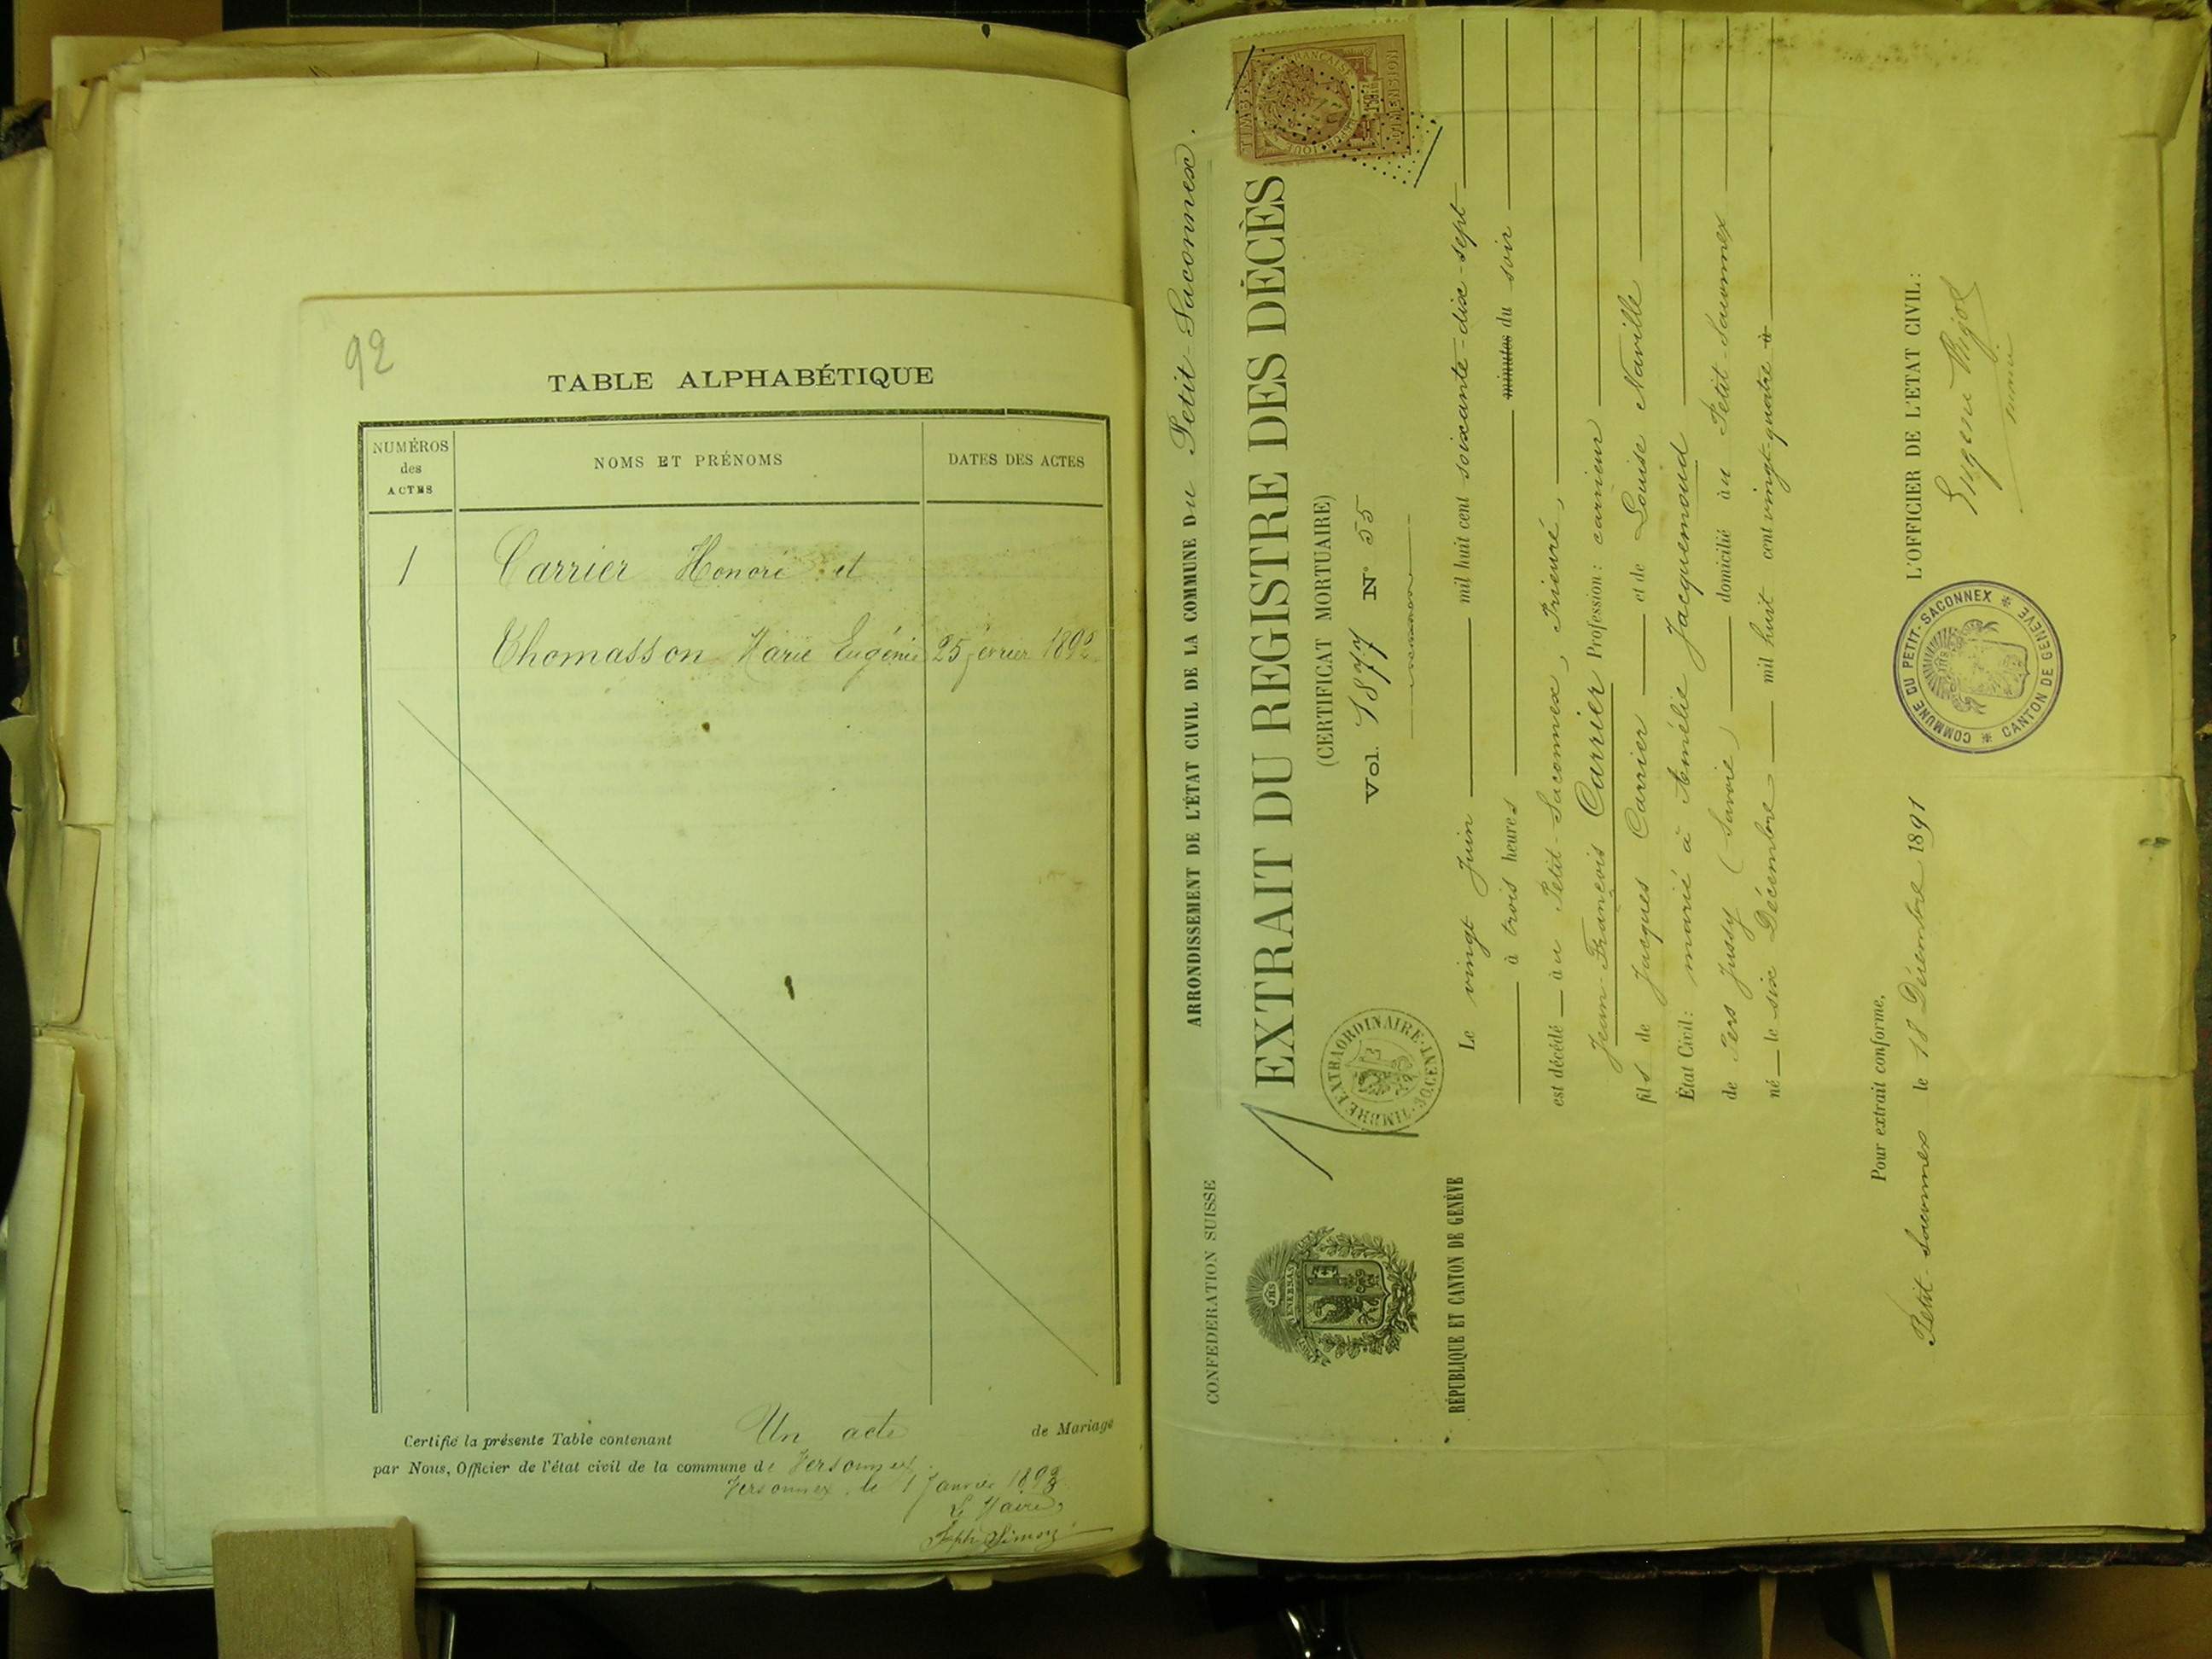 92
TABLE ALPHABÉTIQUE
NUMÉROS des ACTES
NOMS ET PRÉNOMS
DATES DES ACTES
1 Carrier Honoré et
Thomasson Marie Eugénie 25 février 1892
Certifié la présente Table contenant Un acte de Mariage
par Nous, Officier de l'état civil de la commune de Versonnex
Versonnex, le 1 Janvier 1893
Le Maire,
CONFÉDÉRATION SUISSE
RÉPUBLIQUE ET CANTON DE GENÈVE
ARRONDISSEMENT DE L'ÉTAT CIVIL DE LA COMMUNE Du Petit-Saconnex.
1
EXTRAIT DU REGISTRE DES DÉCÈS
(CERTIFICAT MORTUAIRE)
Vol. 1877 N° 55
TIMBRE EXTRAORDINAIRE
Le vingt Juin mil huit cent soixante-dix-sept
à trois heures minutes du soir
est décédé au Petit-Saconnex, Prieuré,
Jean-François Carrier Profession: carrieur
fils de Jacques Carrier et de Louise Naville
État Civil: marié à Amélie Jacquemoud
de Pers Jussy (Savoie) domicilié au Petit-Saconnex
né le six Décembre mil huit cent vingt-quatre à
Pour extrait conforme,
Petit-Saconnex le 18 Décembre 1891
L'OFFICIER DE L'ÉTAT CIVIL:
COMMUNE DU PETIT-SACONNEX
CANTON DE GENÈVE